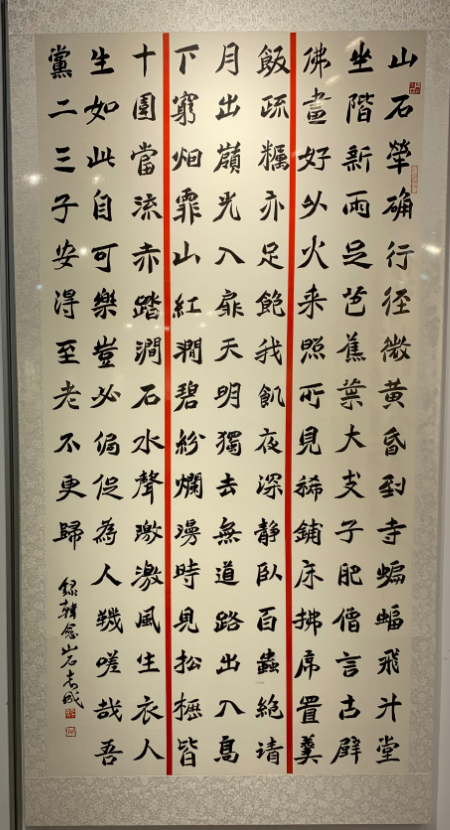 山石犖确行径微黃昏到寺蝙蝠飛升堂
坐階新雨足芭蕉葉大支子肥僧言古壁
佛畫好以火来照所見稀鋪床拂席置羹
飯疏糲亦足飽我飢夜深靜臥百蟲絕清
月出嶺光入扉天明獨去無道路出入高
下窮烟霏山紅澗碧紛爛漫時見松櫪皆
十圍當流赤踏澗石水聲激激風生衣人
生如此自可樂豈必侷促為人鞿嗟哉吾
黨二三子安得至老不更歸
錄韓愈山石志成